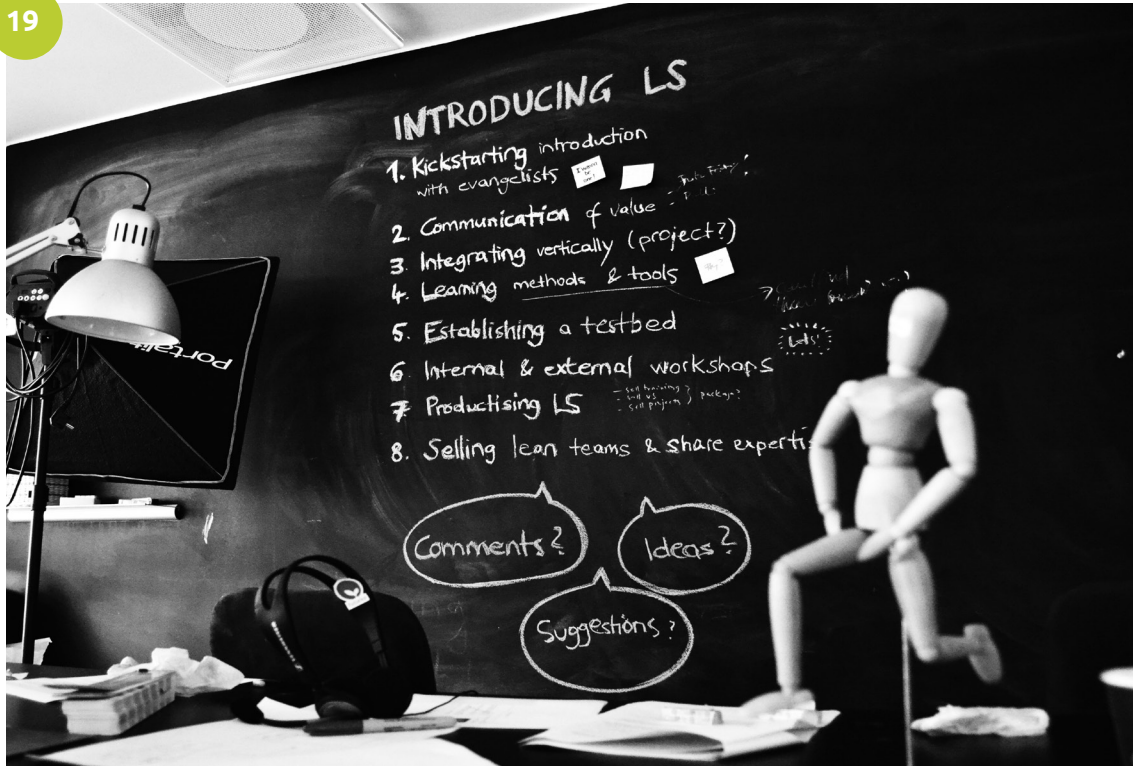 19
INTRODUCING LS
1. Kickstarting introduction
with evangelists
2. Communication of value
3. Integrating vertically (project?)
4. Learning methods & tools
5. Establishing a testbed
Lets!
6 Internal & external workshops
7 Productising LS
- sell training?
- sell
- sell
package?
8. Selling lean teams & share experti
Comments?
Ideas?
Suggestions?
Portali